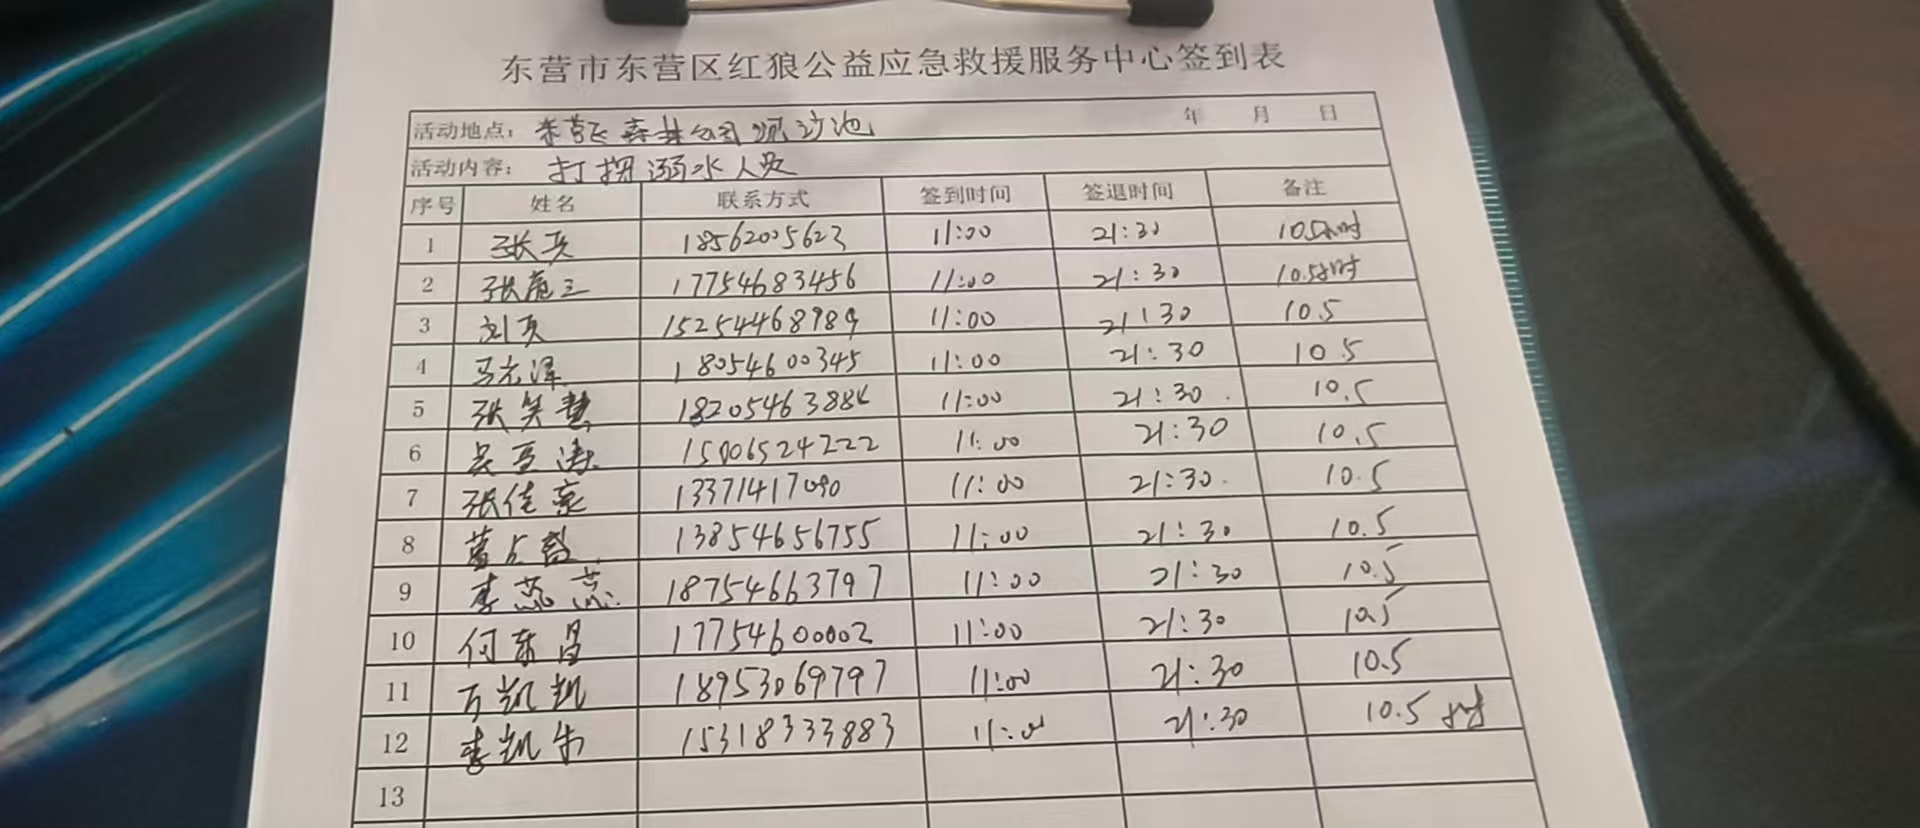 东营市东营区红狼公益应急救援服务中心签到表
活动地点: 东营区森林公园沉沙池 年 月 日
活动内容: 打捞溺水人员
序号 姓名 联系方式 签到时间 签退时间 备注
1 张兵 18562005623 11:00 21:30 10.5小时
2 张 三 17754683456 11:00 21:30 10.5小时
3 刘 15254468989 11:00 21:30 10.5
4 马光泽 18054600345 11:00 21:30 10.5
5 张笑慧 11:00 21:30 10.5
6 吴亚涛 15006524222 11:00 21:30 10.5
7 张佳豪 13371417090 11:00 21:30 10.5
8 13854656755 11:00 21:30 10.5
9 李燕燕 18754663797 11:00 21:30 10.5
10 何东昌 17754600002 11:00 21:30 10.5
11 万凯凯 18953069797 11:00 21:30 10.5
12 李凯 15318333883 11:00 21:30 10.5小时
13